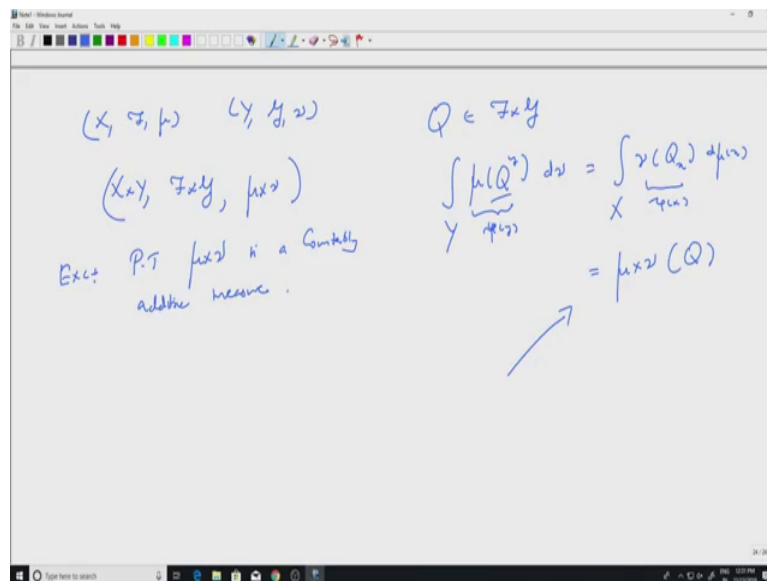 Note1 - Windows Journal
File Edit View Insert Actions Tools Help
(X, 𝓕, μ) (Y, 𝒢, ν)
(X×Y, 𝓕×𝒢, μ×ν)
Exc: P.T μ×ν is a Countably
additive measure.
Q ∈ 𝓕×𝒢
∫_Y μ(Q^y) dν = ∫_X ν(Q_x) dμ(x)
φ(y) ψ(x)
= μ×ν (Q)
24/24
Type here to search
ENG 12:31 PM